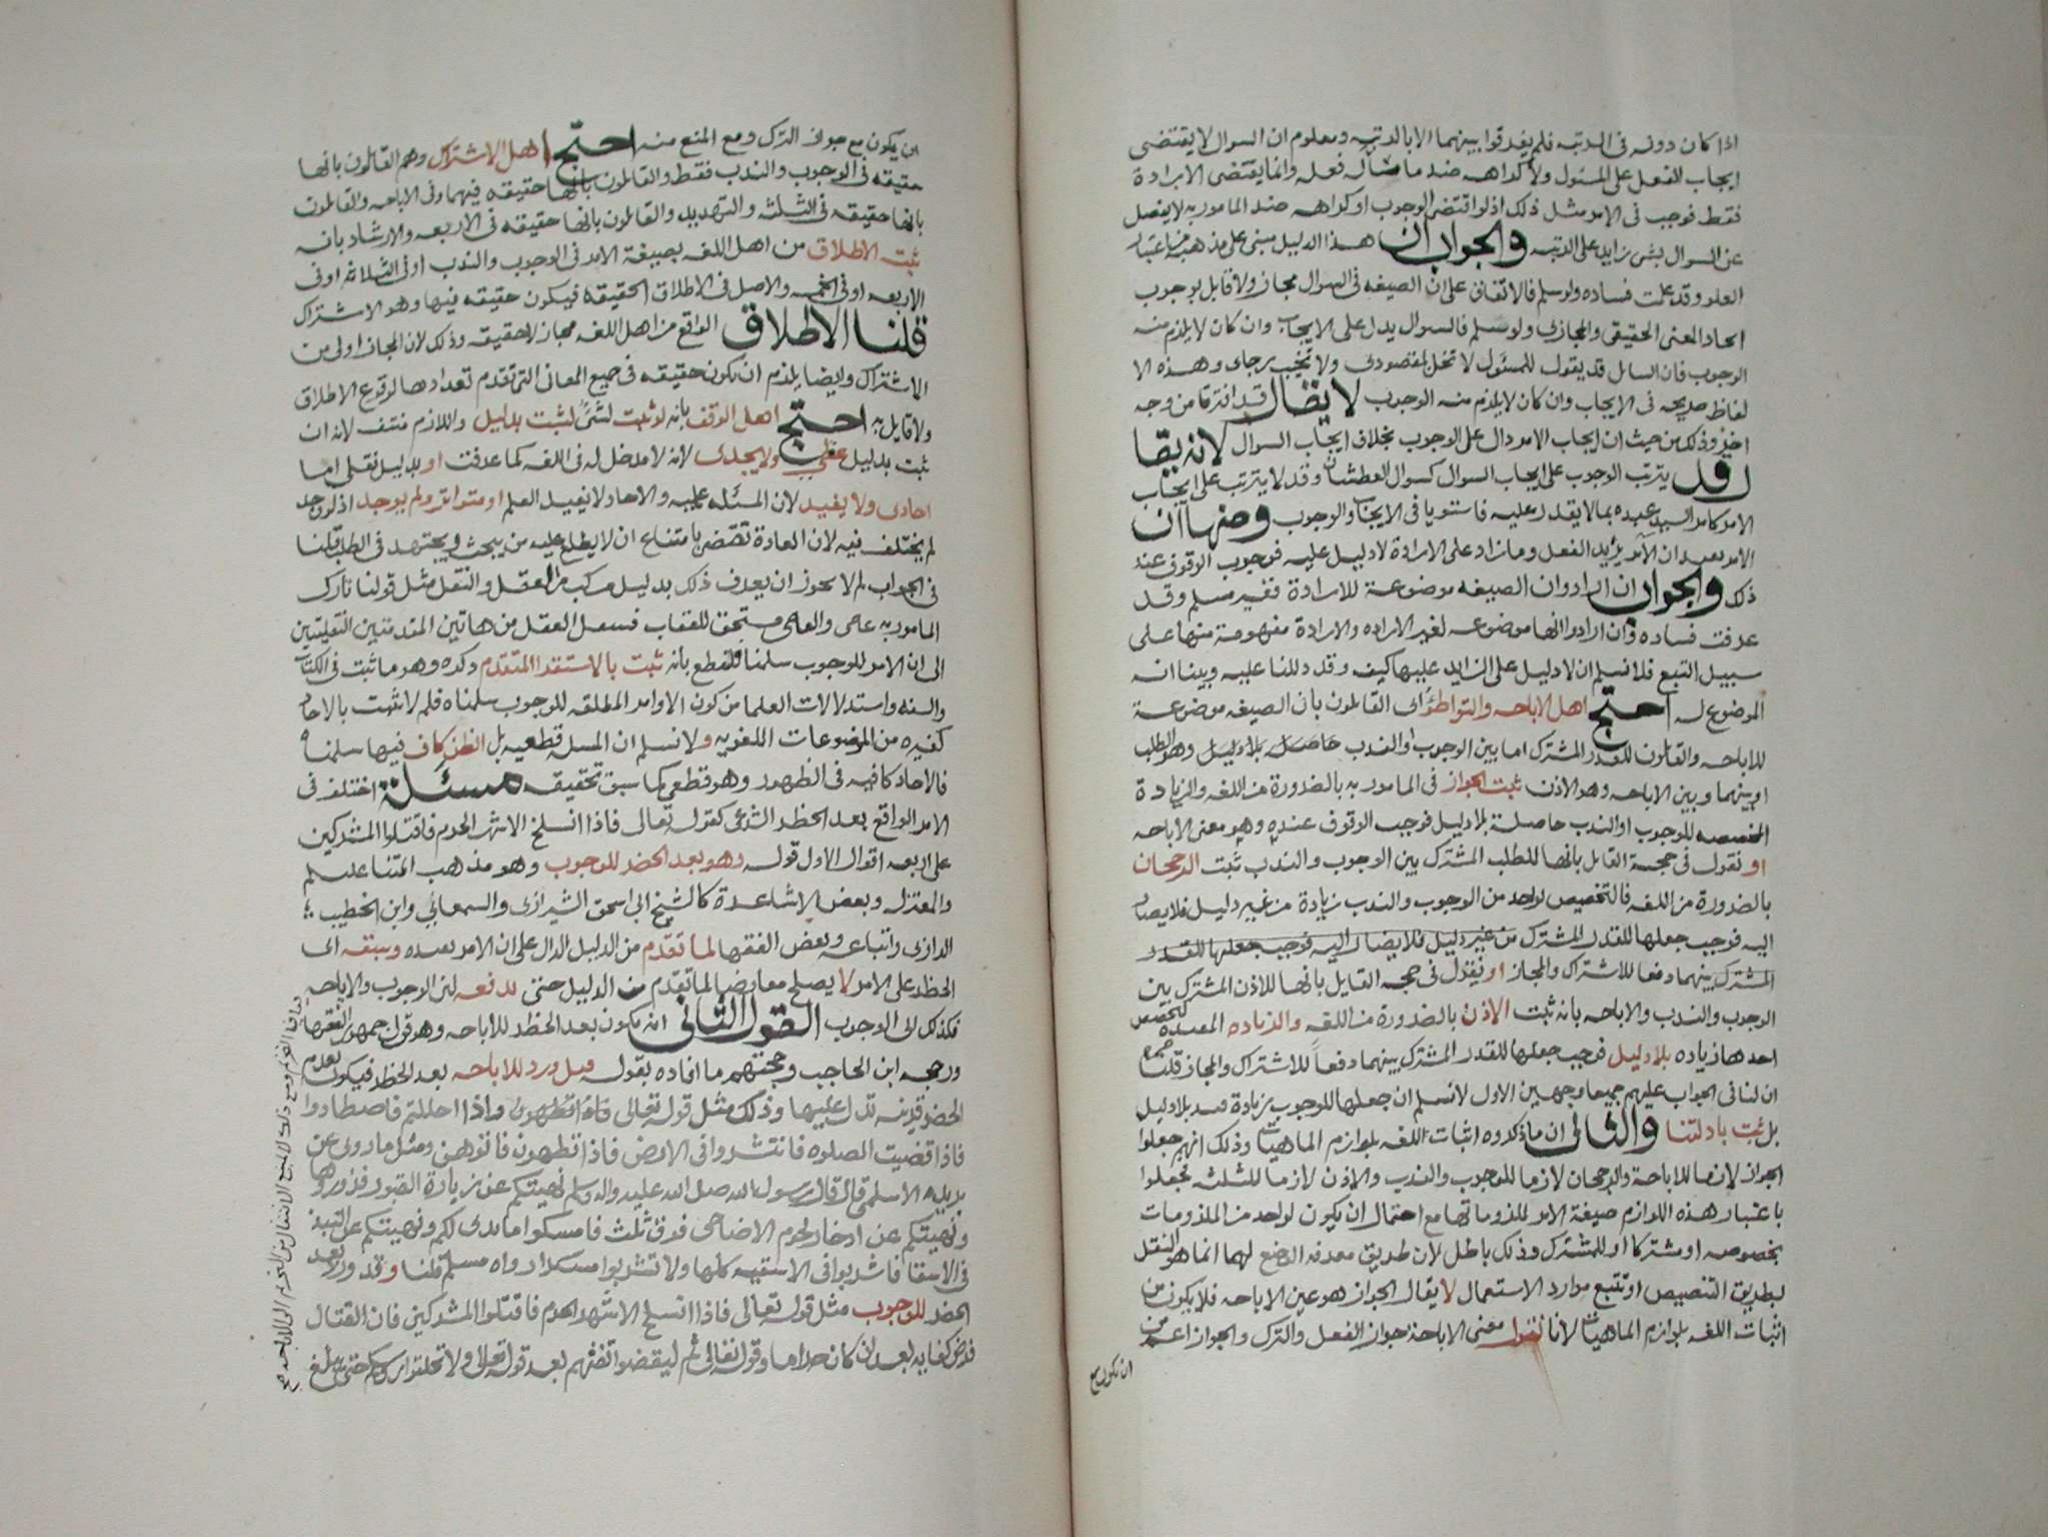 اذا كان دونه فى الرتبه فلم يفرقوا بينهما الا بالرتبه ومعلوم ان السوال لا يقتضى
ايجاب الفعل على المسئول ولا كراهه ضد ما سأله فعله وانما يقتضى الارادة
فقط فوجب فى الامر مثل ذلك اذ لو اقتضى الوجوب او كراهه ضد المامور به لا يفصل
عن السوال بشى زايد على الرتبه والجواب ان هذا الدليل مبنى على مذهب من اعتبار
العلو وقد علمت فساده ولو سلم فالاتفاق على ان الصيغه فى السوال مجاز ولا قايل بوجوب
اتحاد المعنى الحقيقى والمجازى ولو سلم فالسوال يدل على الايجاب وان كان لا يلزم منه
الوجوب فان السايل قد يقول للمسئول لا تخل بمقصودى ولا تخيب رجاى وهذه الا
لفاظ صريحه فى الايجاب وان كان لا يلزم منه الوجوب لا يقال قد افترقا من وجه
اخر وذلك من حيث ان ايجاب الامر دال على الوجوب بخلاف ايجاب السوال لانه يقا
ل قد يترتب الوجوب على ايجاب السوال كسوال العطشان وقد لا يترتب على ايجاب
الامر كامر السيد عبده بما لا يقدر عليه فاستويا فى الايجاب والوجوب ومنها ان
الامر يفيد ان الآمر يريد الفعل وما زاد على الارادة لا دليل عليه فوجب الوقوف عند
ذلك والجواب ان ارادوا ان الصيغه موضوعة للارادة فغير مسلم وقد
عرفت فساده وان ارادوا انها موضوعه لغير الاراده والارادة مفهومة منها على
سبيل التبع فلا نسلم ان لا دليل على الزايد عليها كيف وقد دللنا عليه وبينا انه
الموضوع له احتج اهل الاباحه والتواطؤ اى القائلون بان الصيغه موضوعة
للاباحه والقائلون للقدر المشترك اما بين الوجوب والندب وهو الطلب
او بينهما وبين الاباحه وهو الاذن ثبت الجواز فى المامور به بالضرورة من اللغه والزيادة
المخصصه للوجوب او الندب حاصلة بلا دليل فوجب الوقوف عنده وهو معنى الاباحه
او نقول فى حجة القايل بانها للطلب المشترك بين الوجوب والندب ثبت الرجحان
بالضرورة من اللغه فالتخصيص لواحد من الوجوب والندب زيادة من غير دليل فلا يصار
اليه فوجب جعلها للقدر المشترك من غير دليل فلا يصار اليه فوجب جعلها للقدر
المشترك بينهما دفعا للاشتراك والمجاز او نقول فى حجه القايل بانها للاذن المشترك بين
الوجوب والندب والاباحه بانه ثبت الاذن بالضرورة من اللغه والزياده المفيده لتخصيص
احدها زياده بلا دليل فوجب جعلها للقدر المشترك بينهما دفعاً للاشتراك والمجاز قلنا
ان لنا فى الجواب عليهم جميعا وجهين الاول لا نسلم ان جعلها للوجوب بزيادة قيد بلا دليل
بل ثبت بادلتنا والثانى ان ما ذكروه اثبات اللغه بلوازم الماهيات وذلك انهم جعلوا
الجواز لازما للاباحة والرجحان لازما للوجوب والندب والاذن لازما للثلثه فجعلوا
باعتبار هذه اللوازم صيغة الامر لملزوماتها مع احتمال ان يكون لواحد من الملزومات
بخصوصه او مشتركا او للمشترك وذلك باطل لان طريق معرفه الوضع لهما انما هو النقل
بطريق التنصيص او تتبع موارد الاستعمال لا يقال الجواز هو عين الاباحه فلا يكون من
اثبات اللغه بلوازم الماهيات لانا نقول معنى الاباحة جواز الفعل والترك والجواز اعم من
ان يكون مع
ان يكون مع جواز الترك ومع المنع منه احتج اهل الاشتراك وهم القائلون بانها
حقيقه فى الوجوب والندب فقط والقائلون بانها حقيقه فيهما وفى الاباحه والقائلون
بانها حقيقه فى الثلثه والتهديد والقائلون بانها حقيقه فى الاربعه والارشاد بانه
ثبت الاطلاق من اهل اللغه بصيغة الامر فى الوجوب والندب او فى الثلاثه او فى
الاربعه او فى الخمسه والاصل فى الاطلاق الحقيقه فيكون حقيقه فيها وهو الاشتراك
قلنا الاطلاق الواقع من اهل اللغه مجاز لا حقيقه وذلك لان المجاز اولى من
الاشتراك وايضا يلزم ان يكون حقيقه فى جميع المعانى التى تقدم تعدادها لوقوع الاطلاق
ولا قايل به احتج اهل الوقف بانه لو ثبت لشئ لثبت بدليل واللازم منتف لانه ان
ثبت بدليل عقلى ولا يجدى لانه لا مدخل له فى اللغه كما عرفت او بدليل نقلى اما
احادى ولا يفيد لان المسئله علميه والاحاد لا تفيد العلم او متواتر ولم يوجد اذ لو وجد
لم يختلف فيه لان العادة تقضى بامتناع ان لا يطلع عليه من يبحث ويجتهد فى الطلب قلنا
فى الجواب لم لا يجوز ان يعرف ذلك بدليل مركب من العقل والنقل مثل قولنا تارك
المامور به عاص والعاصى مستحق للعقاب فينتقل العقل من هاتين المقدمتين النقليتين
الى ان الامر للوجوب سلمنا فلنقطع بانه ثبت بالاستقرا المتقدم ذكره وهو ما ثبت فى الكتاب
والسنه واستدلالات العلما من كون الاوامر المطلقه للوجوب سلمناه فلم لا تثبت بالاحاد
كغيره من الموضوعات اللغويه ولا نسلم ان المسله قطعيه بل الظن كاف فيها سلمناه
فالاحاد كافيه فى الظهور وهو قطعى كما سبق تحقيقه مسئلة اختلف فى
الامر الواقع بعد الحظر الشرعى كقوله تعالى فاذا انسلخ الاشهر الحرم فاقتلوا المشركين
على اربعه اقوال الاول قوله وهو بعد الحضر للوجوب وهو مذهب ائمتنا عليهم
والمعتزله وبعض الاشاعرة كالشيخ ابى اسحق الشيرازى والسمعانى وابن الخطيب
الرازى واتباعه وبعض الفقها لما تقدم من الدليل الدال على ان الامر يفيده وسبقه اى
الحظر على الامر لا يصلح معارضا لما تقدم من الدليل حتى يدفعه لان الوجوب والاباحه
فكذلك الى الوجوب القول الثانى انه يكون بعد الحظر للاباحه وهو قول جمهور الفقها
ورجحه ابن الحاجب وحجتهم ما افاده بقوله قيل ورد للاباحه بعد الحظر فيكون تقدم
الحضر قرينه تدل عليها وذلك مثل قوله تعالى واذا حللتم فاصطادوا
فاذا قضيت الصلوه فانتشروا فى الارض فاذا تطهرن فاتوهن ومثل ما روى عن
بريده الاسلمى قال قال رسول الله صلى الله عليه واله وسلم نهيتكم عن زيارة القبور فزوروها
ونهيتكم عن ادخار لحوم الاضاحى فوق ثلث فامسكوا ما بدى لكم ونهيتكم عن النبيذ
فى الاسقا فاشربوا فى الاسقيه كلها ولا تشربوا مسكرا رواه مسلم قلنا وقد ورد بعد
الحضر للوجوب مثل قوله تعالى فاذا انسلخ الاشهر الحرم فاقتلوا المشركين فان القتال
فرض كفايه بعد ان كان حراما وقوله تعالى ثم ليقضوا تفثهم بعد قوله تعالى ولا تحلقوا رؤسكم حتى يبلغ